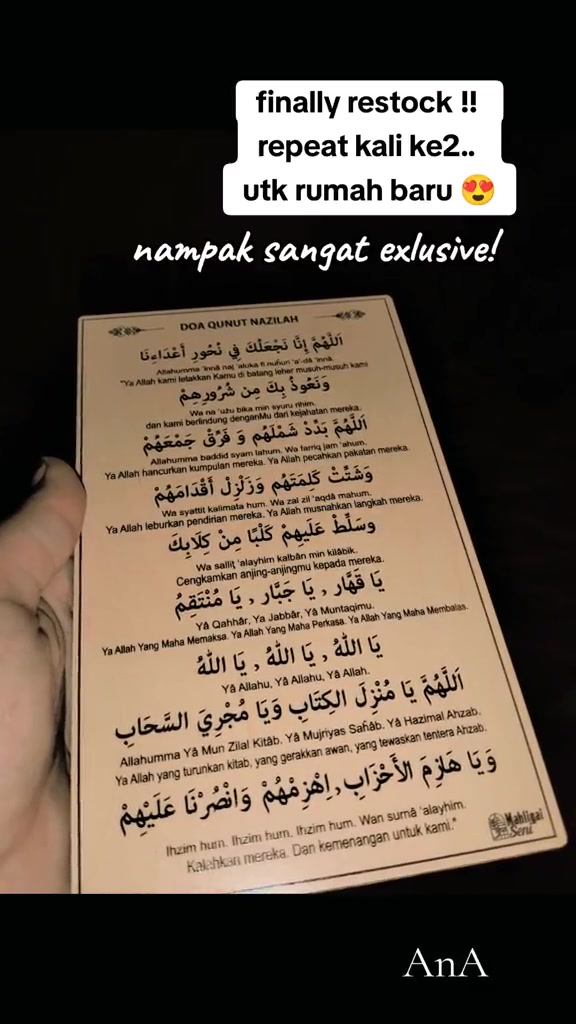 finally restock !!
repeat kali ke2..
utk rumah baru 😍
nampak sangat exlusive!
DOA QUNUT NAZILAH
اَللّٰهُمَّ إِنَّا نَجْعَلُكَ فِي نُحُورِ أَعْدَاءِنَا
Allahumma 'innā naj 'aluka fi nuḥuri 'a'-dā 'innā.
"Ya Allah kami letakkan Kamu di batang leher musuh-musuh kami
وَنَعُوذُ بِكَ مِن شُرُورِهِمْ
Wa na 'użu bika min syuru rihim.
dan kami berlindung denganMu dari kejahatan mereka.
اَللّٰهُمَّ بَدِّدْ شَمْلَهُم وَ فَرِّقْ جَمْعَهُمْ
Allahumma baddid syam lahum. Wa farriq jam 'ahum.
Ya Allah hancurkan kumpulan mereka. Ya Allah pecahkan pakatan mereka.
وَشَتِّتْ كَلِمَتَهُم وَزَلْزِلْ أَقْدَامَهُمْ
Wa syattit kalimata hum. Wa zal zil 'aqdā mahum.
Ya Allah leburkan pendirian mereka. Ya Allah musnahkan langkah mereka.
وسَلِّطْ عَلَيهِمْ كَلْبًا مِنْ كِلَابِكَ
Wa salliṭ 'alayhim kalbān min kilābik.
Cengkamkan anjing-anjingmu kepada mereka.
يَا قَهَّار , يَا جَبَّار , يَا مُنْتَقِمُ
Yā Qahhār, Ya Jabbār, Yā Muntaqimu.
Ya Allah Yang Maha Memaksa. Ya Allah Yang Maha Perkasa. Ya Allah Yang Maha Membalas.
يَا اَللّٰهُ , يَا اَللّٰهُ , يَا اَللّٰهُ
Yā Allahu, Yā Allahu, Yā Allah.
اَللّٰهُمَّ يَا مُنْزِلَ الكِتَابِ وَيَا مُجْرِيَ السَّحَابِ
Allahumma Yā Mun Zilal Kitāb. Yā Mujriyas Saḥāb. Yā Hazimal Ahzab.
Ya Allah yang turunkan kitab, yang gerakkan awan, yang tewaskan tentera Ahzab.
وَيَا هَازِمَ الأَحْزَابِ, اِهْزِمْهُمْ وَانْصُرْنَا عَلَيْهِمْ
Ihzim hum. Ihzim hum. Ihzim hum. Wan surnā 'alayhim.
Kalahkan mereka. Dan kemenangan untuk kami."
Mahligai
Seni
AnA